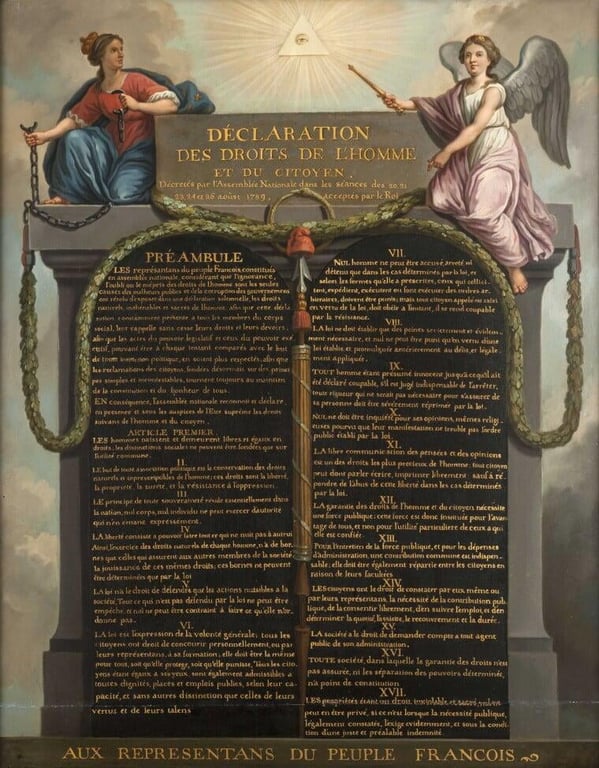 DÉCLARATION
DES DROITS DE L'HOMME
ET DU CITOYEN,
Décretés par l'Assemblée Nationale dans les séances des 20, 21
23, 24 et 26 août 1789, acceptés par le Roi
PRÉAMBULE
LES représentans du peuple François, constitués
en assemblée nationale, considérant que l'ignorance,
l'oubli ou le mépris des droits de l'homme sont les seules
causes des malheurs publics et de la corruption des gouvernemens
ont résolu d'exposer dans une déclaration solemnelle, les droits
naturels, inaliénables et sacrés de l'homme, afin que cette décla-
ration, constamment présente à tous les membres du corps
social, leur rappelle sans cesse leurs droits et leurs devoirs,
afin que les actes du pouvoir législatif et ceux du pouvoir exé-
cutif, pouvant être à chaque instant comparés avec le but
de toute institution politique, en soient plus respectés; afin que
les réclamations des citoyens, fondées désormais sur des princi-
pes simples et incontestables, tournent toujours au maintien
de la constitution et du bonheur de tous.
EN conséquence, l'assemblée nationale reconnoit et déclare
en présence et sous les auspices de l'Etre suprême les droits
suivans de l'homme et du citoyen.
ARTICLE PREMIER
LES hommes naissent et demeurent libres et égaux en
droits, les distinctions sociales ne peuvent être fondées que sur
l'utilité commune.
II.
LE but de toute association politique est la conservation des droits
naturels et imprescriptibles de l'homme; ces droits sont la liberté,
la propriété, la sureté, et la résistance à l'oppression.
III.
LE principe de toute souveraineté réside essentiellement dans
la nation, nul corps, nul individu ne peut exercer d'autorité
qui n'en émane expressement.
IV.
LA liberté consiste à pouvoir faire tout ce qui ne nuit pas à autrui
Ainsi, l'exercice des droits naturels de chaque homme, n'a de bor-
nes que celles qui assurent aux autres membres de la société
la jouissance de ces mêmes droits; ces bornes ne peuvent
être déterminées que par la loi
V.
LA loi n'a le droit de défendre que les actions nuisibles à la
société. Tout ce qui n'est pas défendu par la loi ne peut être
empêché, et nul ne peut être contraint à faire ce qu'elle n'or-
donne pas.
VI.
LA loi est l'expression de la volonté générale; tous les
citoyens ont droit de concourir personnellement, ou par
leurs représentans, à sa formation; elle doit être la même
pour tous, soit qu'elle protege, soit qu'elle punisse. Tous les cito-
yens étant égaux à ses yeux, sont également admissibles à
toutes dignités, places et emplois publics, selon leur ca-
pacité, et sans autres distinction que celles de leurs
vertus et de leurs talens
VII.
NUL homme ne peut être accusé, arreté ni
détenu que dans les cas déterminés par la loi, et
selon les formes qu'elle a prescrites, ceux qui sollici-
tent, expédient, exécutent ou font exécuter des ordres ar-
bitraires, doivent être punis; mais tout citoyen appelé ou saisi
en vertu de la loi, doit obéir à l'instant, il se rend coupable
par la résistance.
VIII.
LA loi ne doit établir que des peines strictement et évidem-
ment nécessaire, et nul ne peut être puni qu'en vertu d'une
loi établie et promulguée antérieurement au délit, et légale-
ment appliquée.
IX.
TOUT homme étant présumé innocent jusqu'à ce qu'il ait
été déclaré coupable, s'il est jugé indispensable de l'arrêter,
toute rigueur qui ne serait pas nécessaire pour s'assurer de
sa personne doit être sévèrement réprimée par la loi.
X.
NUL ne doit être inquiété pour ses opinions, mêmes religi-
euses pourvu que leur manifestation ne trouble pas l'ordre
public établi par la loi.
XI.
LA libre communication des pensées et des opinions
est un des droits les plus precieux de l'homme; tout citoyen
peut donc parler écrire, imprimer librement: sauf à ré-
pondre de l'abus de cette liberté dans les cas déterminés
par la loi.
XII.
LA garantie des droits de l'homme et du citoyen nécessite
une force publique; cette force est donc instituée pour l'avan-
tage de tous, et non pour l'utilité particuliere de ceux a qui
elle est confiée.
XIII.
POUR l'entretien de la force publique, et pour les dépenses
d'administration, une contribution commune est indispen-
sable; elle doit être également répartie entre les citoyens en
raison de leurs facultées
XIV.
LES citoyens ont le droit de constater par eux même ou
par leurs représentans, la nécessité de la contribution pub-
lique, de la consentir librement, d'en suivre l'emploi, et d'en
déterminer la quotité, l'assiette, le recouvrement et la durée.
XV.
LA société a le droit de demander compte a tout agent
public de son administration.
XVI.
TOUTE société, dans laquelle la garantie des droits n'est
pas assurée, ni la séparation des pouvoirs déterminée,
n'a point de constitution
XVII.
LES propriétés étant un droit inviolable et sacré, nul ne
peut en être privé, si ce n'est lorsque la nécessité publique,
légalement constatée, l'exige evidemment, et sous la condi-
tion d'une juste et préalable indemnité.
AUX REPRESENTANS DU PEUPLE FRANCOIS